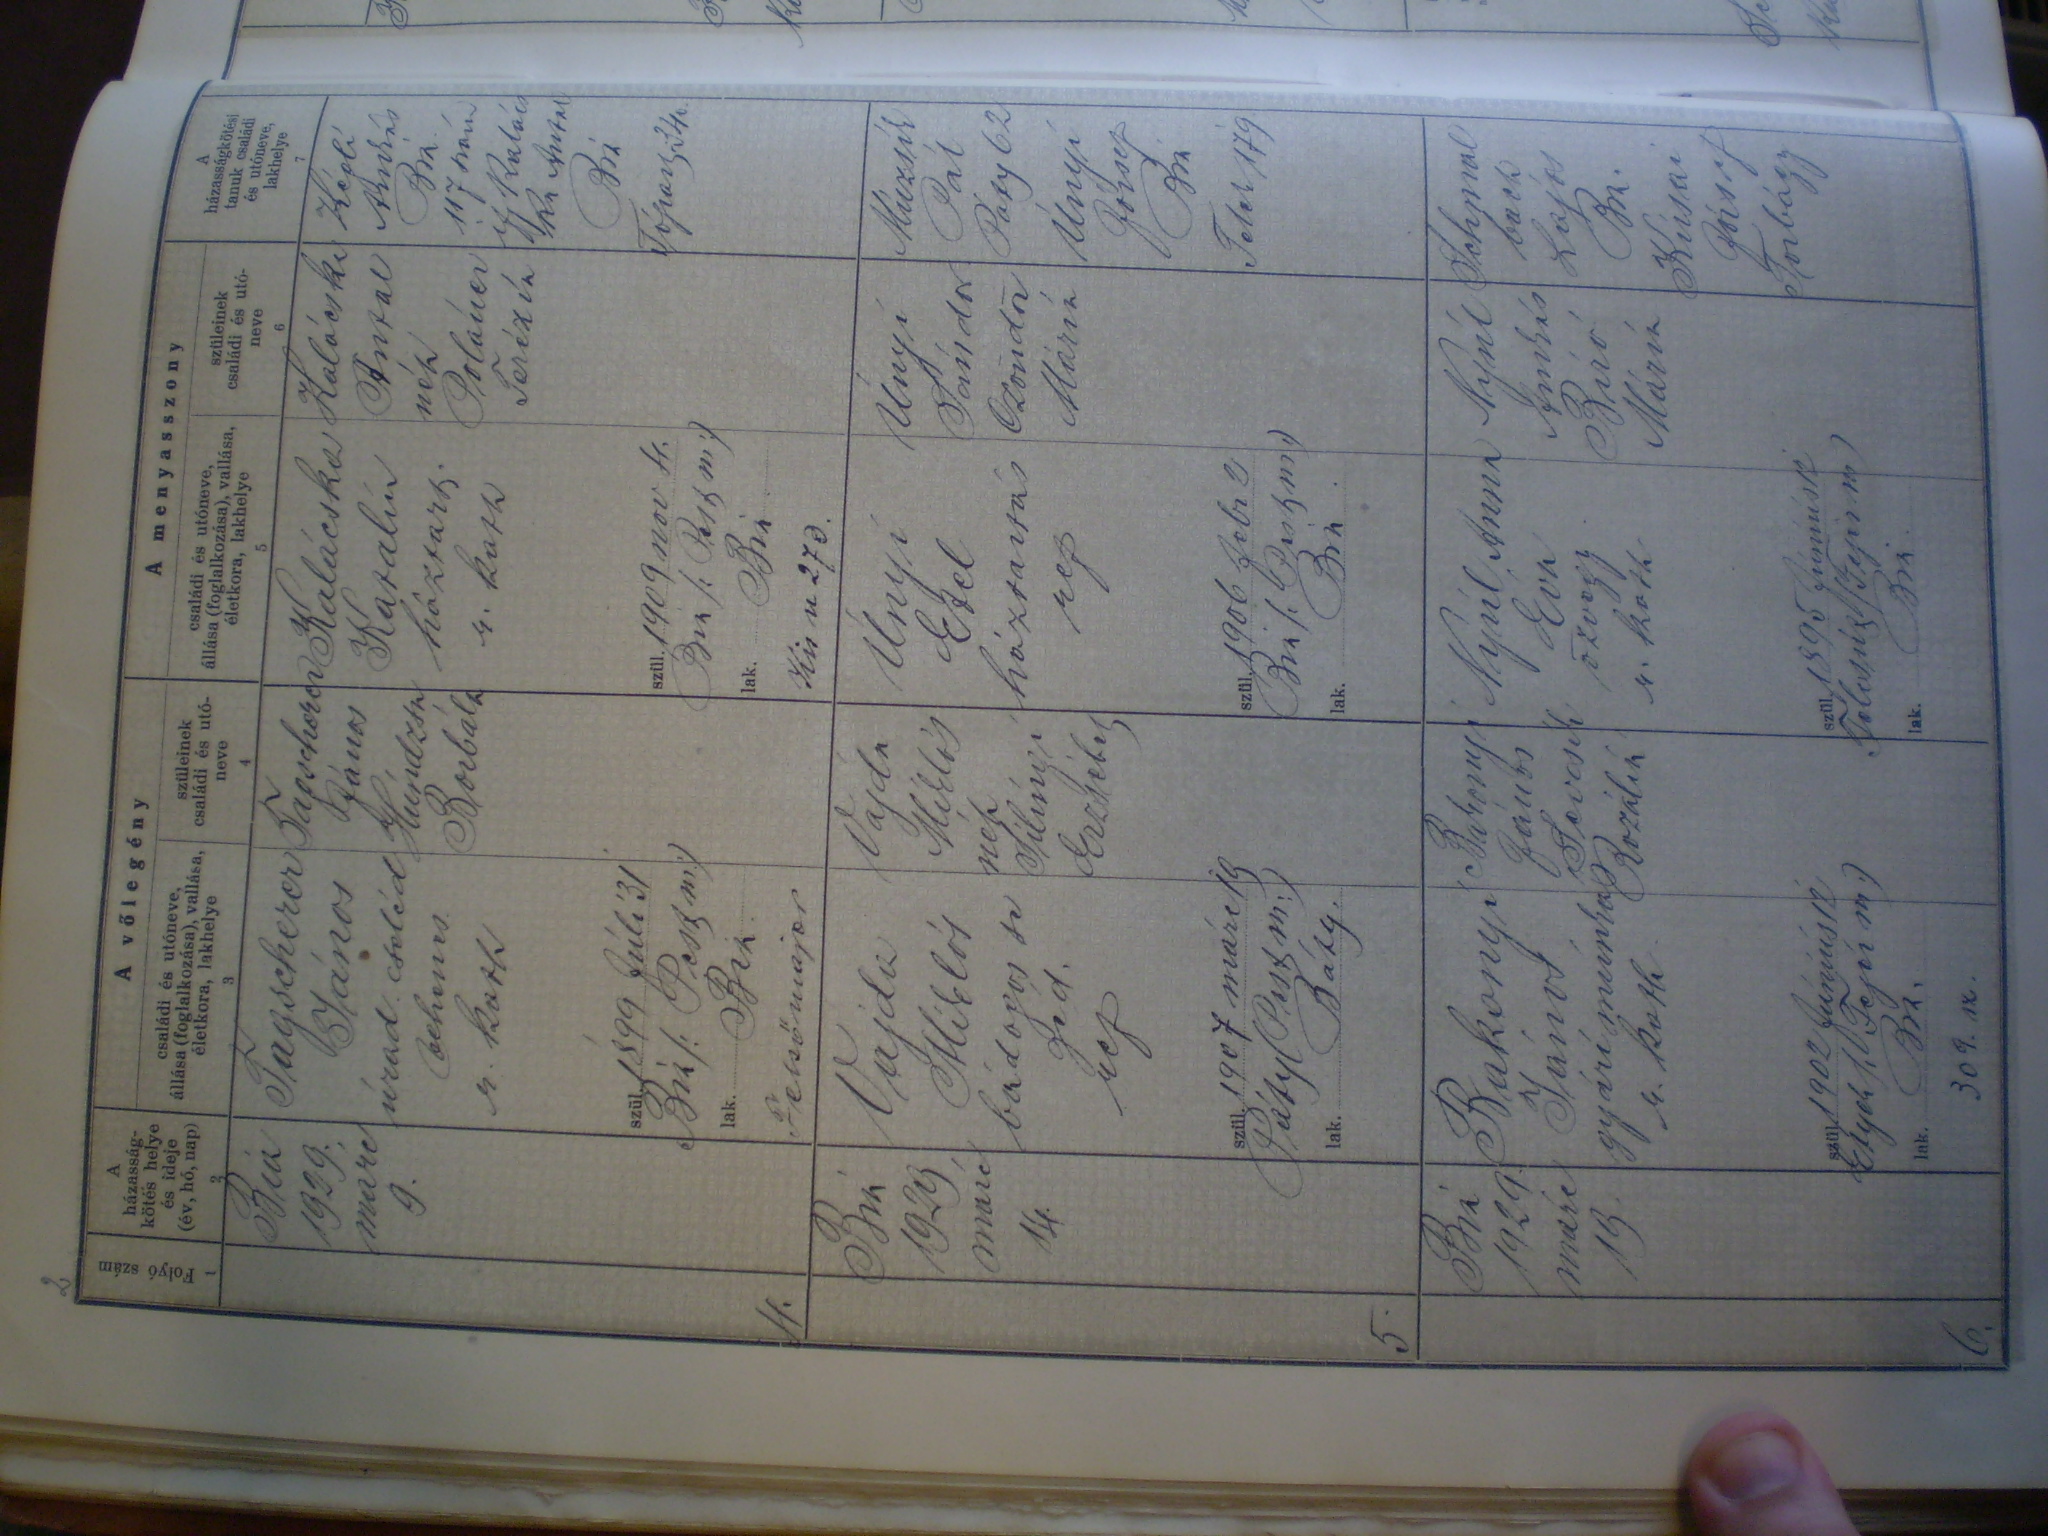 2
A
házasság-
kötés helye
és ideje
(év, hó, nap)
Folyó
szám
1
2
A vőlegény
családi és utóneve,
állása (foglalkozása), vallása,
életkora, lakhelye
3
szüleinek
családi és utó-
neve
4
A menyasszony
családi és utóneve,
állása (foglalkozása), vallása,
életkora, lakhelye
5
szüleinek
családi és utó-
neve
6
A
házasságkötési
tanuk családi
és utóneve,
lakhelye
7
4.
Bia
1929.
márc
9.
Tagscherer
János
urad. cseléd
r. kath
szül. 1899 júli 31
Bia (: Pest m:)
lak. Bia.
Felsőmajor
Tagscherer
János
Borbála
Kalácska
Katalin
háztart.
r. kath
szül. 1909 nov 4.
Bia (: Pest m:)
lak. Bia
Kis u 273.
Kalácska
Antal
nék
Terézia
András
Bia
117 szám
Antal
Bia
5.
Bia
1929
márc
14.
Vajda
Miklós
bádogos s
ref
szül. 1907 márc 19
Páty (Pest m:)
lak. Páty.
Vajda
Miklós
nek
Erzsébet
Únyi
Etel
háztartás
ref
szül. 1906 febr 2
Bia (: Pest m:)
lak. Bia.
Únyi
Sándor
Czöndör
Mária
Muzsik
Pál
Páty 62
Únyi
József
Bia
Telek 179
6.
Bia
1929.
márc
19.
Bakonyi
János
gyári munkás
r. kath
szül. 1902 június 12
Etyek (: Fejér m:)
lak. Bia.
309. sz.
Bakonyi
János
Rozália
Nyúl Anna
Éva
özvegy
r. kath
szül. 1895
(Fejér m)
lak. Bia.
Nyúl
András
Bíró
Mária
Schmal
bach
Lajos
Bia.
József
Torbágy